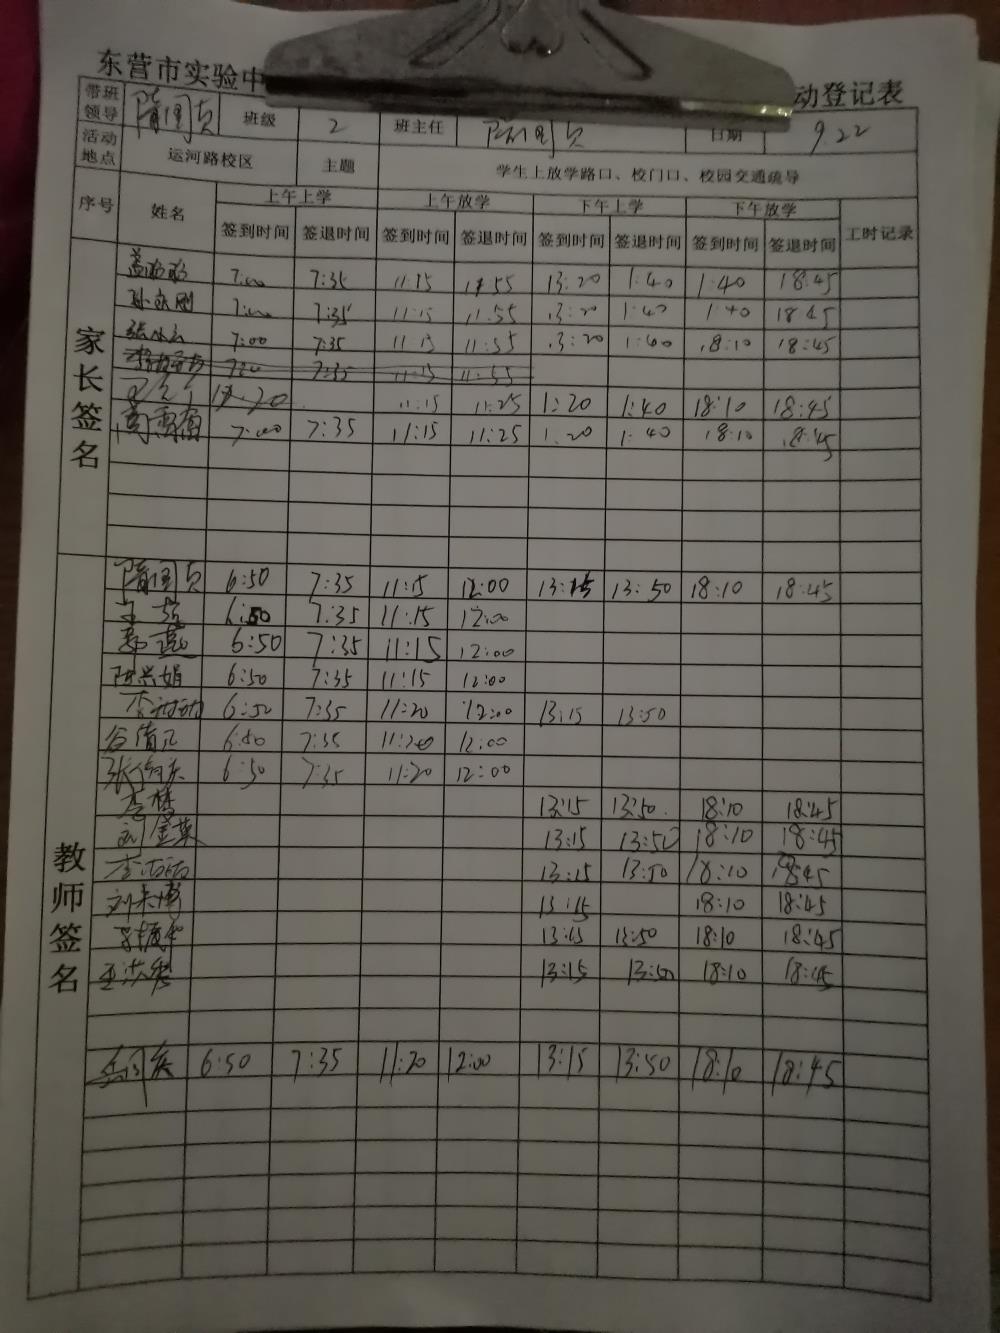 东营市实验中 动登记表
带班领导 隋国贞 班级 2 班主任 隋国贞 日期 9.22
活动地点 运河路校区 主题 学生上放学路口、校门口、校园交通疏导
序号 姓名 上午上学 上午放学 下午上学 下午放学 工时记录
签到时间 签退时间 签到时间 签退时间 签到时间 签退时间 签到时间 签退时间
家长签名
7:00 7:35 11:15 11:55 13:20 1:40 1:40 18:45
7:00 7:35 11:15 11:55 13:20 1:40 1:40 18:45
7:00 7:35 11:15 11:55 13:20 1:40 18:10 18:45
7:35 11:15 11:55
11:15 11:25 1:20 1:40 18:10 18:45
7:00 7:35 11:15 11:25 1:20 1:40 18:10 18:45
教师签名
隋国贞 6:50 7:35 11:15 12:00 13:15 13:50 18:10 18:45
6:50 7:35 11:15 12:00
6:50 7:35 11:15 12:00
6:50 7:35 11:15 12:00
6:50 7:35 11:20 12:00 13:15 13:50
6:50 7:35 11:20 12:00
6:50 7:35 11:20 12:00
13:15 13:50 18:10 18:45
刘金英 13:15 13:50 18:10 18:45
13:15 13:50 18:10 18:45
13:15 18:10 18:45
13:15 13:50 18:10 18:45
13:15 13:50 18:10 18:45
6:50 7:35 11:20 12:00 13:15 13:50 18:10 18:45